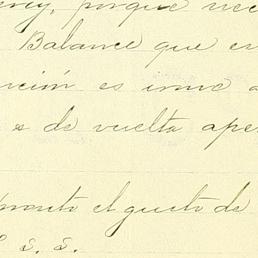 porque nec
Balance que en
ción es inme a
s de vuelta ape
pronto el gusto de
s. s.